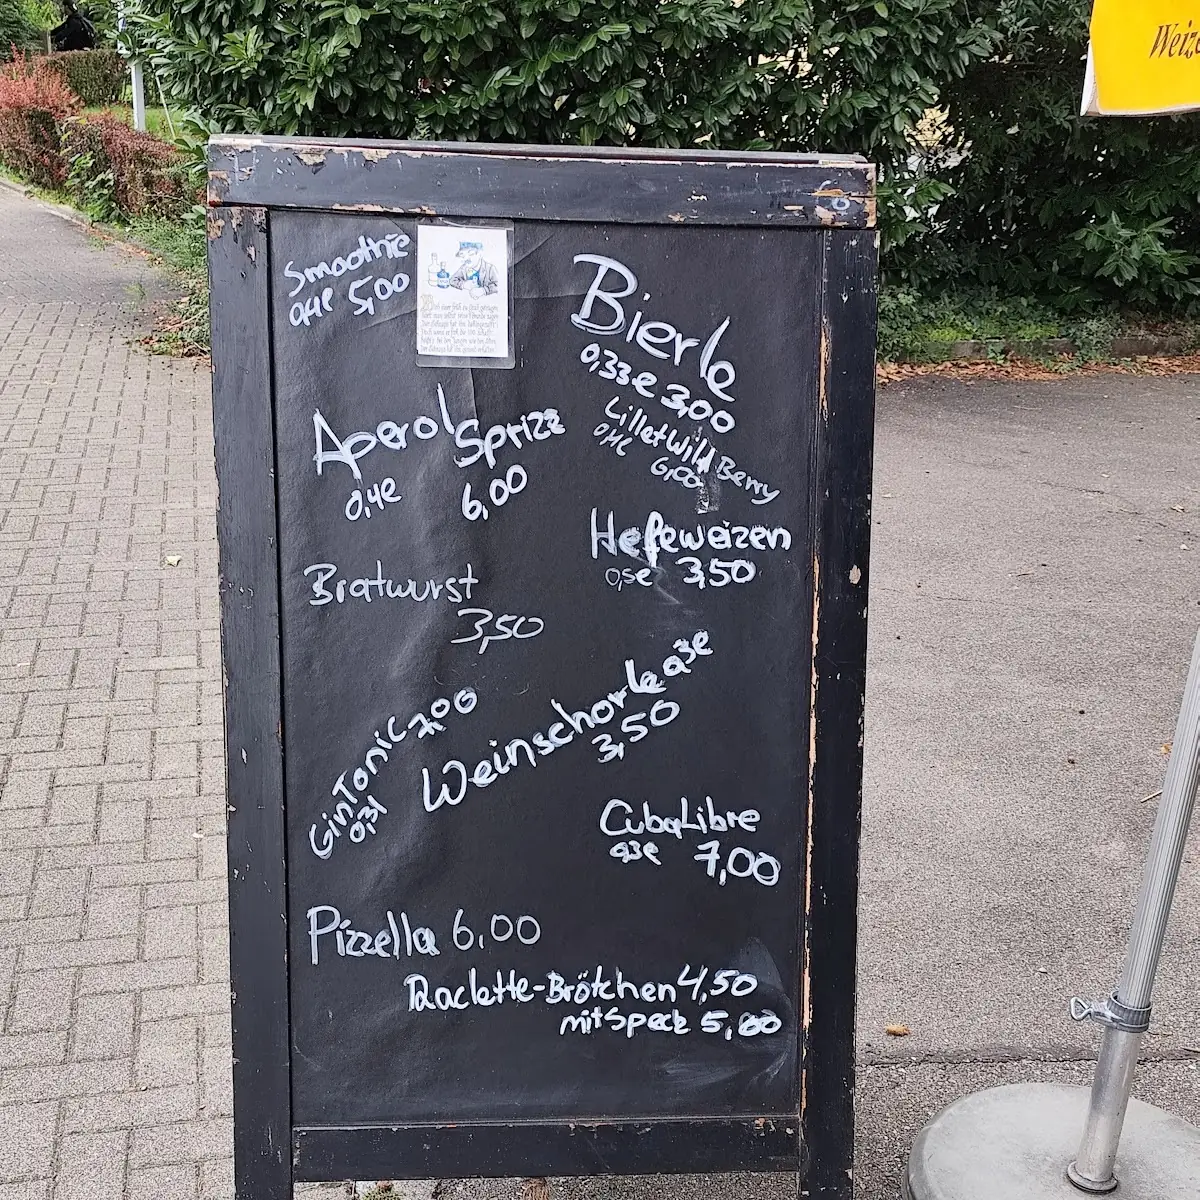 Smoothie
0,4l 5,00
Bierle
0,33l 3,00
Lillet Wild Berry
0,4l 6,00
Aperol Sprizz
0,4l 6,00
Hefeweizen
0,5l 3,50
Bratwurst
3,50
Weinschorle 0,3l
3,50
GinTonic 7,00
0,3l
CubaLibre
0,3l 7,00
Pizzella 6,00
Raclette-Brötchen 4,50
mit Speck 5,00